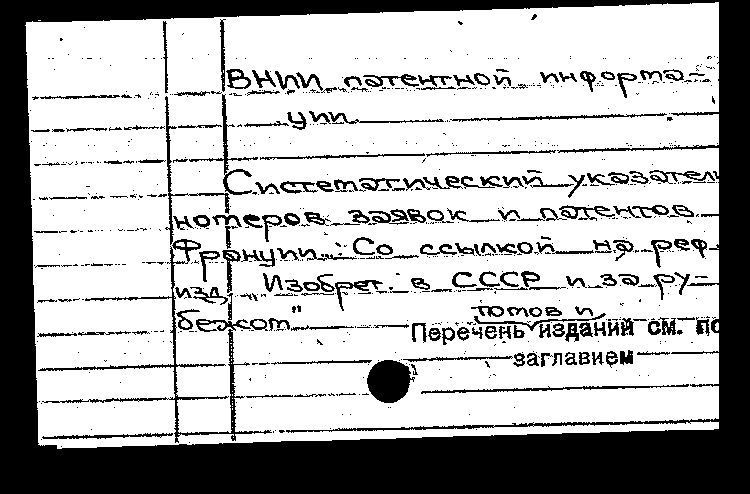 ВНИИ патентной информа-
ции.
Систематический указатель
номеров заявок и патентов
Франции..: Со ссылкой на реф.
изд. "Изобрет. в СССР и за ру-
бежом"
томов и
Перечень изданий см. по
заглавием